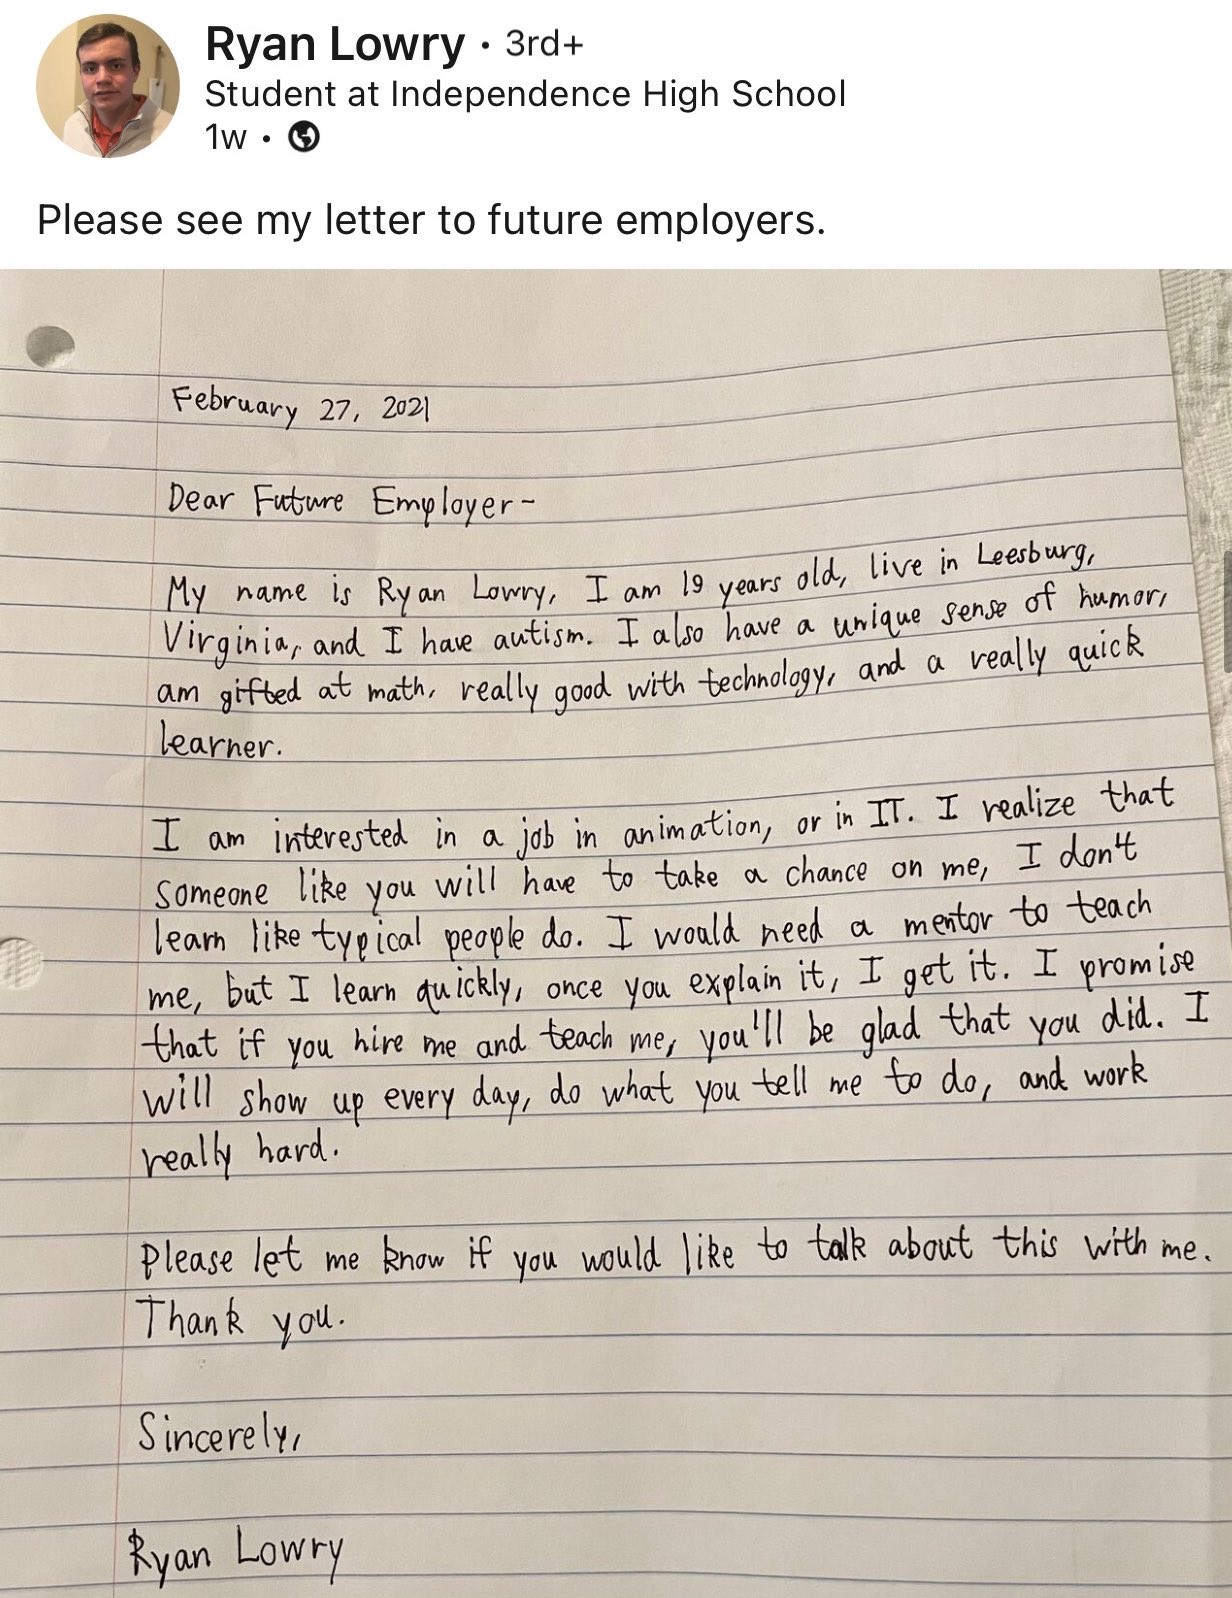 Ryan Lowry • 3rd+
Student at Independence High School
1w •
Please see my letter to future employers.
February 27, 2021
Dear Future Employer-
My name is Ryan Lowry, I am 19 years old, live in Leesburg,
Virginia, and I have autism. I also have a unique sense of humor,
am gifted at math, really good with technology, and a really quick
learner.
I am interested in a job in animation, or in IT. I realize that
someone like you will have to take a chance on me, I don't
learn like typical people do. I would need a mentor to teach
me, but I learn quickly, once you explain it, I get it. I promise
that if you hire me and teach me, you'll be glad that you did. I
will show up every day, do what you tell me to do, and work
really hard.
Please let me know if you would like to talk about this with me.
Thank you.
Sincerely,
Ryan Lowry